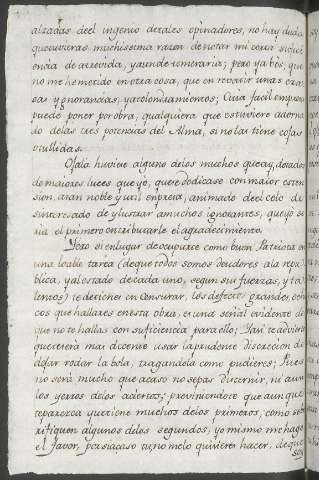 alzadas deel ingenio detales opinadores, no hay duda
que tuvieras muchissima razon de notar mi corta suficie
encia de atrevida, yaunde temeraria; pero ya bès, que
no me hè metido en otra cosa, que en revatir unas cra
sas ygnorancias, y atolondramientos; Cuia facil empresa
puede poner por obra, qualquiera que estuviere adorna
do delas tres potencias del Alma, si no las tiene cojas
o tullidas.
Ojala huviese alguno delos muchos que ay, dotados
de maiores luces que yo, que se dedicase con maior esten
sion, atan noble y util enpresa, animado deel celo de-
sinteresado de ylustrar amuchos ignorantes, que yo se
ria el primero entributarle el agradecimiento.
Pero si en lugar de ocuparte como buen Patriota en
una loable tarea (de que todos somos deudores ala repu
blica, y al estado de cada uno, segun sus fuerzas, y ta
lentos) te detienes en censurar, los defectos grandes, ò chi
cos que hallares en esta obra, es una señal evidente de
que no te hallas con suficiencia para ello; Y asi te advierto
que tuviera mas dicente usar la prudente discrecion de
dejar rodar la bola, tragandola como pudieres; Pues
no serà mucho que acaso no sepas discernir, ni aun
los yerros delos aciertos; previniendote que aunque
te parezca que tiene muchos delos primeros, como se
ratifiquen algunos delos segundos, yo mismo me hago
el favor, por si acaso tu no me lo quisieres hacer, de que
son